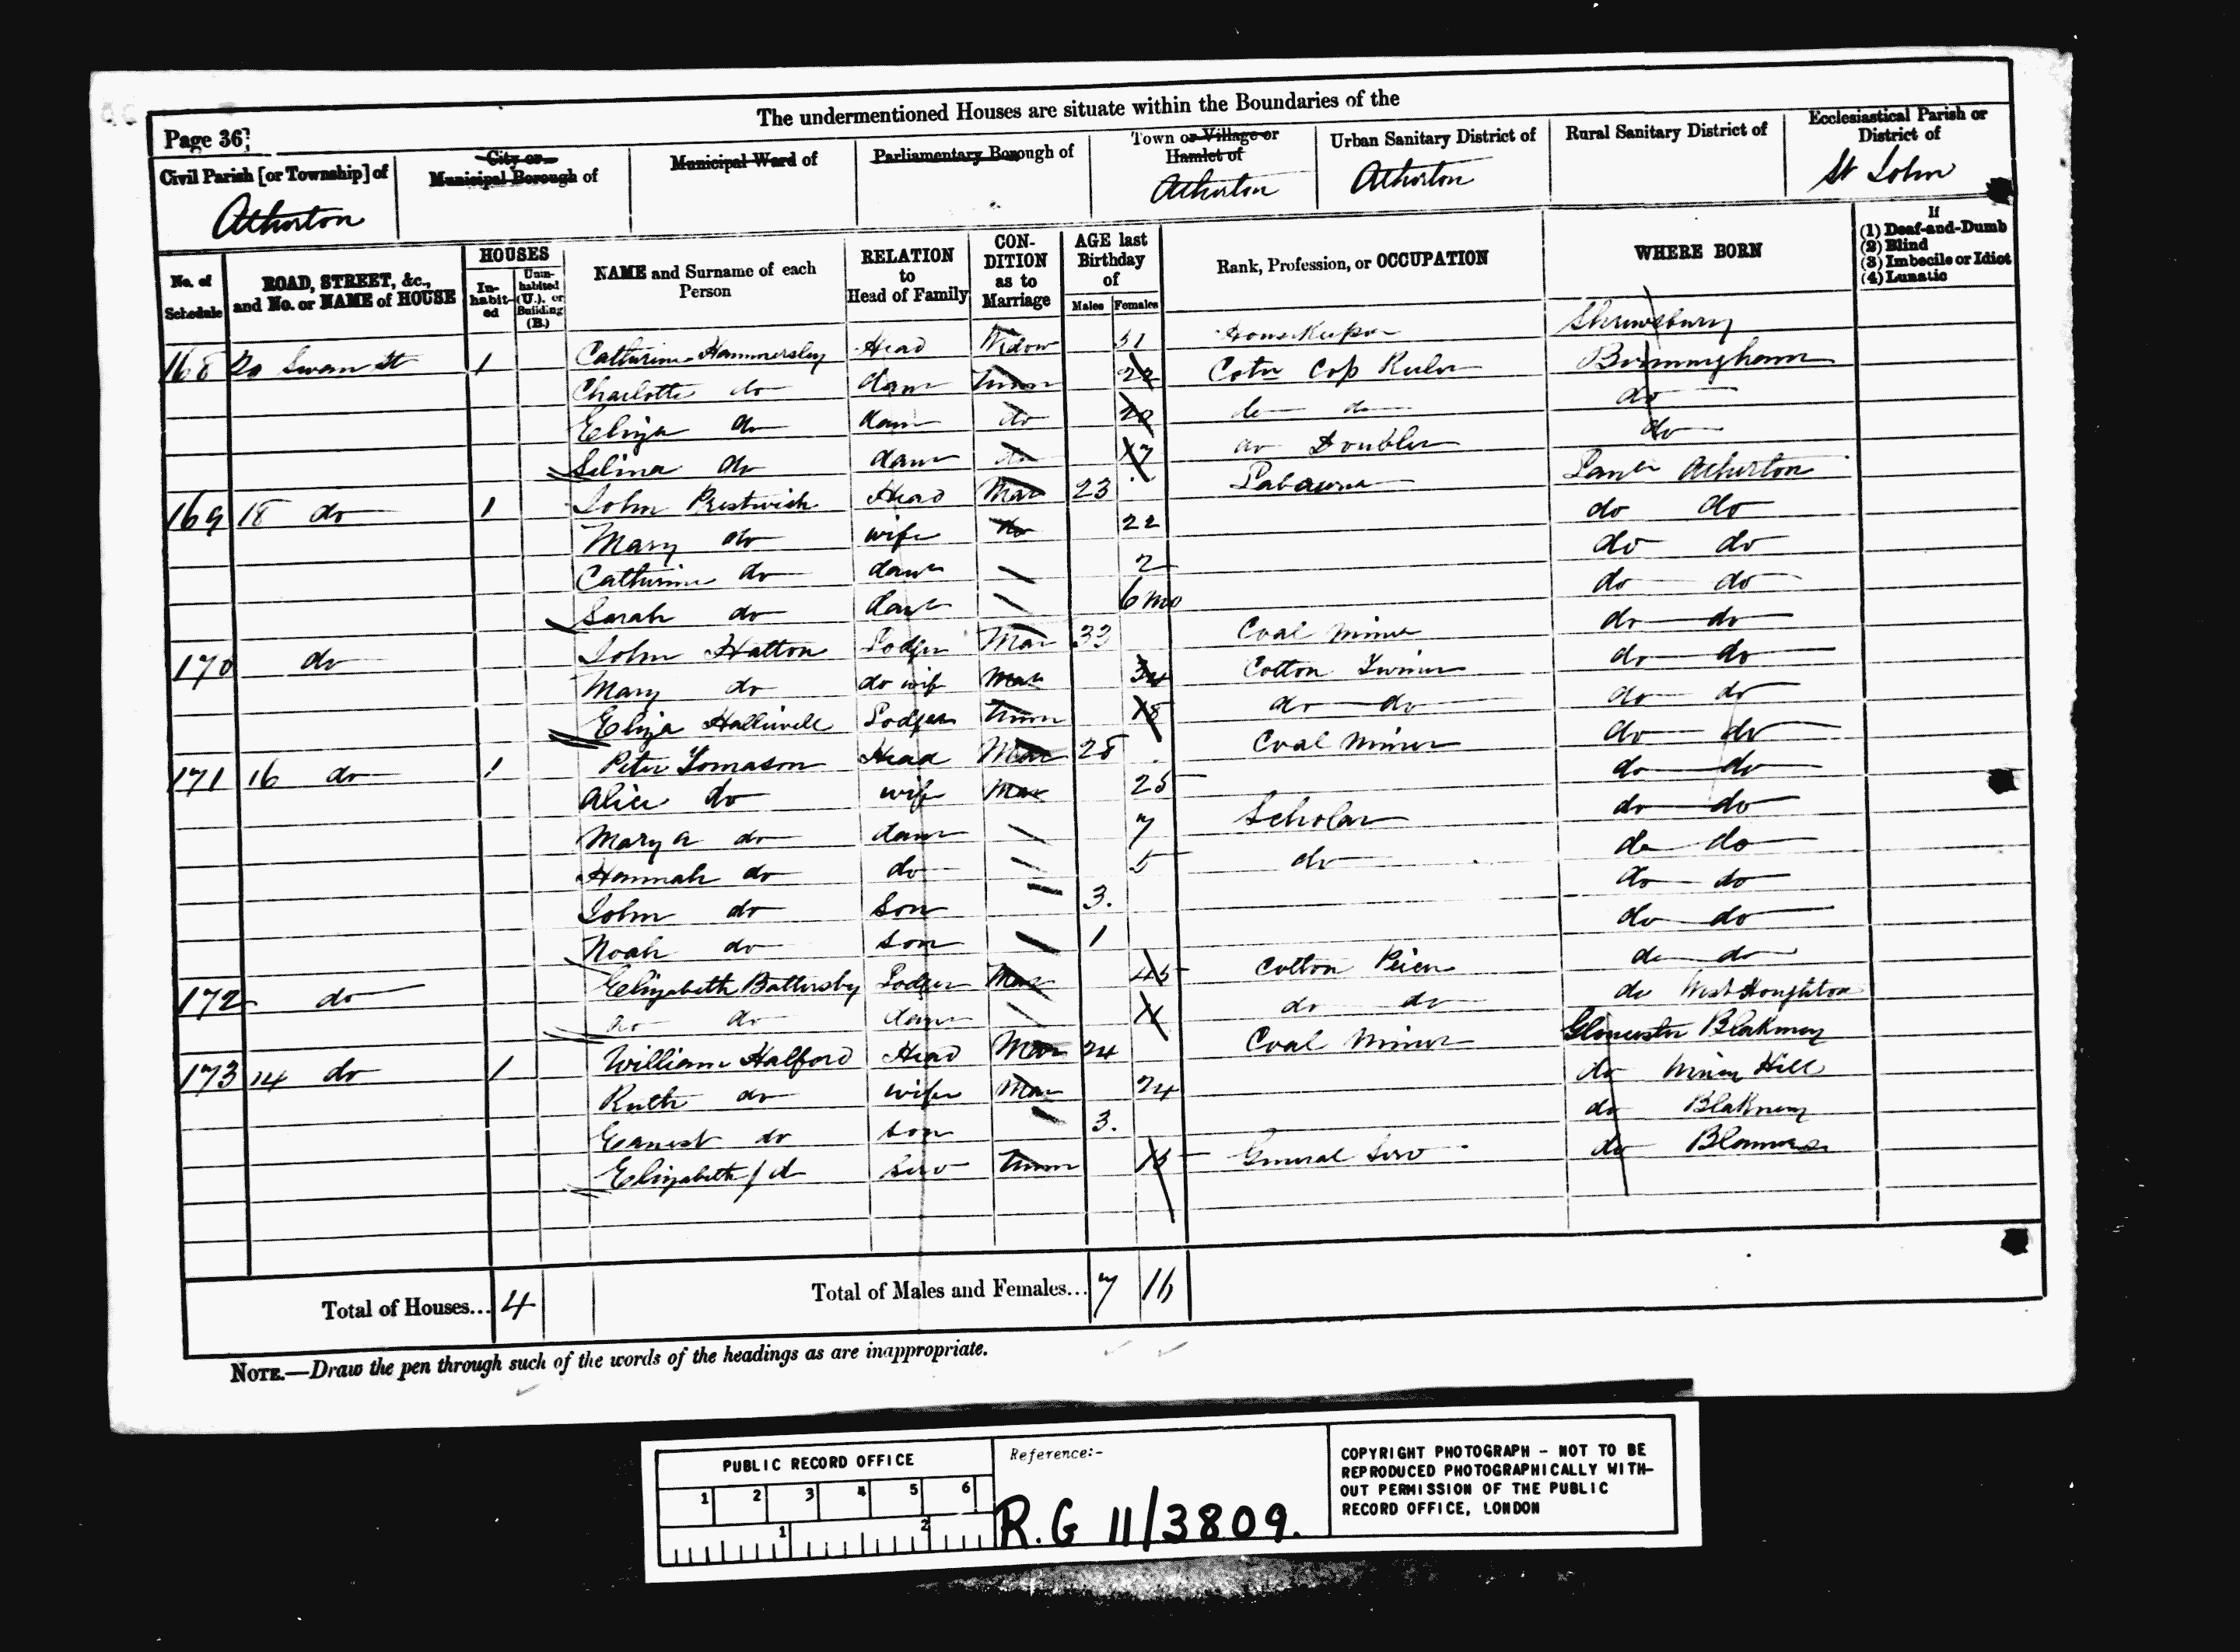 The undermentioned Houses are situate within the Boundaries of the
Page 36
Civil Parish [or Township] of
City or Municipal Borough of
Municipal Ward of
Parliamentary Borough of
Town or Village or Hamlet of
Urban Sanitary District of
Rural Sanitary District of
Ecclesiastical Parish or District of
Atherton Atherton Atherton St John
No. of Schedule
ROAD, STREET, &c., and No. or NAME of HOUSE
HOUSES
In-habit-ed
Unin-habited (U.), or Building (B.)
NAME and Surname of each Person
RELATION to Head of Family
CON-DITION as to Marriage
AGE last Birthday of
Males Females
Rank, Profession, or OCCUPATION
WHERE BORN
If
(1) Deaf-and-Dumb
(2) Blind
(3) Imbecile or Idiot
(4) Lunatic
168 20 Swan St 1 Catherine Hammersley Head Widow 51 Housekeeper Shrewsbury
Charlotte do daur Unm 22 Cotn Cop Reeler Birmingham
Eliza do daur do 20 do do do
Selina do daur do 17 do Doubler do
169 18 do 1 John Prestwich Head Mar 23 Labourer Lanc Atherton
Mary do wife do 22 do do
Catherine do daur 2 do do
Sarah do daur 6 mo do do
170 do John Hatton Lodger Mar 33 Coal Miner do do
Mary do do wife Mar 34 Cotton do do
Eliza Halliwell Lodger Unm 18 do do do do
171 16 do 1 Peter Tomason Head Mar 28 Coal Miner do do
Alice do wife Mar 25 do do
Mary A do daur 7 Scholar do do
Hannah do do 5 do do do
John do son 3 do do
Noah do son 1 do do
172 do Elizabeth Battersby Lodger Mar 45 Cotton do do
do do daur do do do West Houghton
173 14 do 1 William Halford Head Mar 24 Coal Miner Gloucester Blakney
Ruth do wife Mar 24 do Hill
Earnest do son 3 do Blakney
Elizabeth do serv Unm 15 General Serv do
Total of Houses... 4 Total of Males and Females... 7 16
NOTE.—Draw the pen through such of the words of the headings as are inappropriate.
PUBLIC RECORD OFFICE
1 2 3 4 5 6
1 2
Reference:-
R.G 11/3809.
COPYRIGHT PHOTOGRAPH - NOT TO BE
REPRODUCED PHOTOGRAPHICALLY WITH-
OUT PERMISSION OF THE PUBLIC
RECORD OFFICE, LONDON